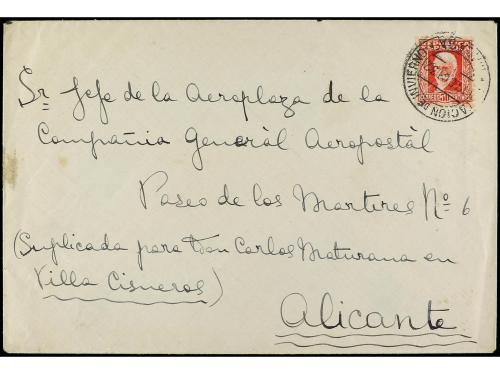 Sr Jefe de la Aeroplaza de la
Compañia General Aeropostál
Paseo de los Martires Nº 6
(Suplicada para Don Carlos Maturana en
Villa Cisneros)
Alicante
ACION DE INVIERNO